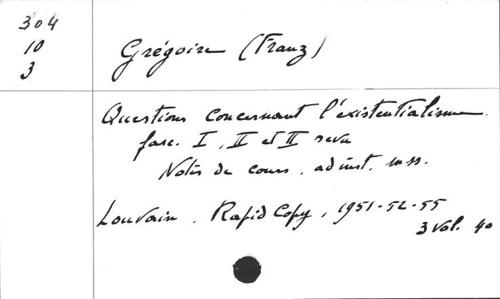 304
10
3
Grégoire (Franz)
Questions concernant l'existentialisme.
fasc. I, II et II revu
Notes de cours, ad inst. mss.
Louvain, Rapid Copy, 1951-52-55
3 vol. 4o